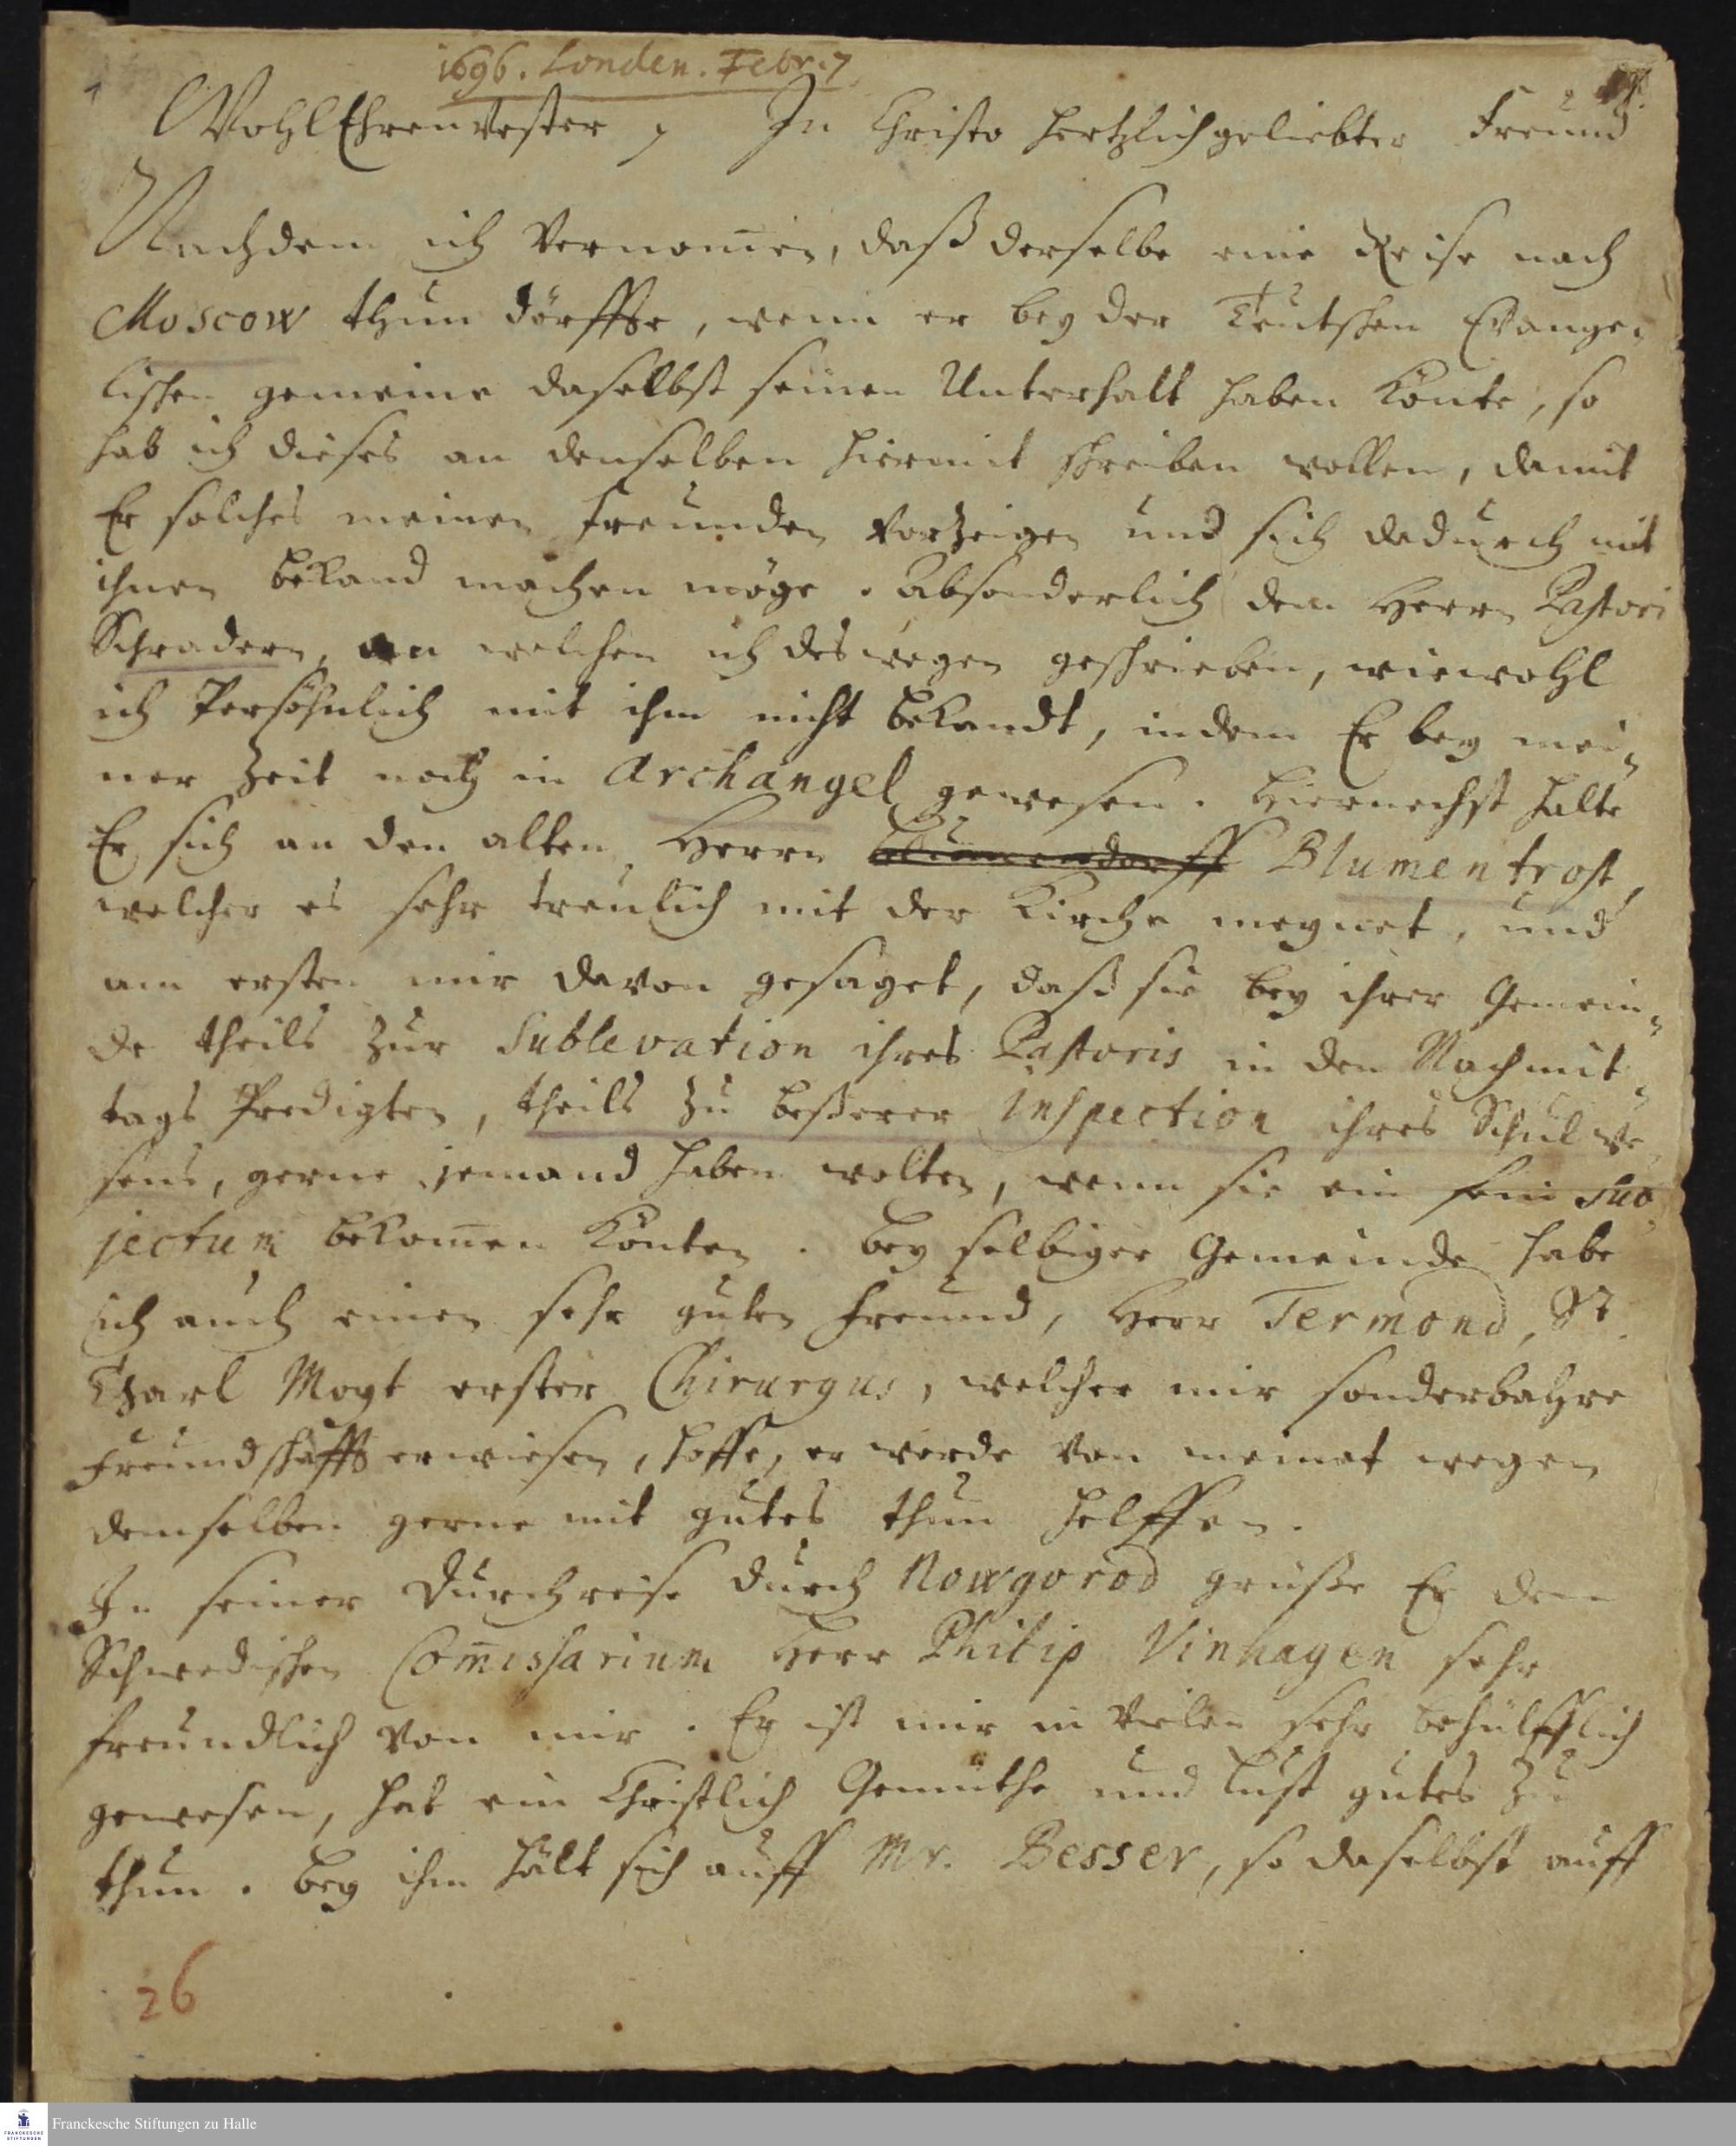 1696. Londen. Febr. 7
WohlEhrenvester, In Christo hertzlich geliebter Freund
Nachdem ich vernom̄en, daß derselbe eine Reise nach
Moscow thun dörffte, wenn er bey der Teutschen Evange-
lischen gemeine daselbst seinen Unterhalt haben könte, so
hab ich dieses an denselben hiermit schreiben wollen, damit
Er solches meinen freunden vorzeigen und sich dadurch mit
ihnen bekand machen möge. Absonderlich dem Herrn Pastori
Schradern, an welchen ich deswegen geschrieben, wiewohl
ich Persöhnlich mit ihm nicht bekandt, indem Er bey mei-
ner Zeit noch in Archangel gewesen. Hiernechst halte
Er sich an den alten Herrn Blumentrost,
welcher es sehr treulich mit der Kirche meynet, und
am ersten mir davon gesaget, daß sie bey ihrer Gemein-
de theils zur Sublevation ihres Pastoris in den Nachmit-
tags Predigten, theils zu beßerer Inspection ihres Schulwe-
sens, gerne jemand haben wolten, wenn sie ein fein sub-
jectum bekom̄en könten. Bey selbiger Gemeinde habe
ich auch einen sehr guten Freund, Herr Termond, Sr.
Tzarl Mayt erster Chirurgus, welcher mir sonderbahre
Freundschafft erwiesen, hoffe, er werde von meinet wegen
demselben gerne mit gutes thun helffen.
In seiner Durchreise durch Nowgorod grüße Er den
Schwedischen Com̄issarium Herr Philip Vinhagen sehr
freundlich von mir. Er ist mir in vielen sehr behülfflich
gewesen, hat ein Christlich Gemüthe und lust gutes zu
thun. Bey ihm hält sich auff Mr. Besser, so daselbst auff
26
Franckesche Stiftungen zu Halle
FRANCKESCHE
STIFTUNGEN